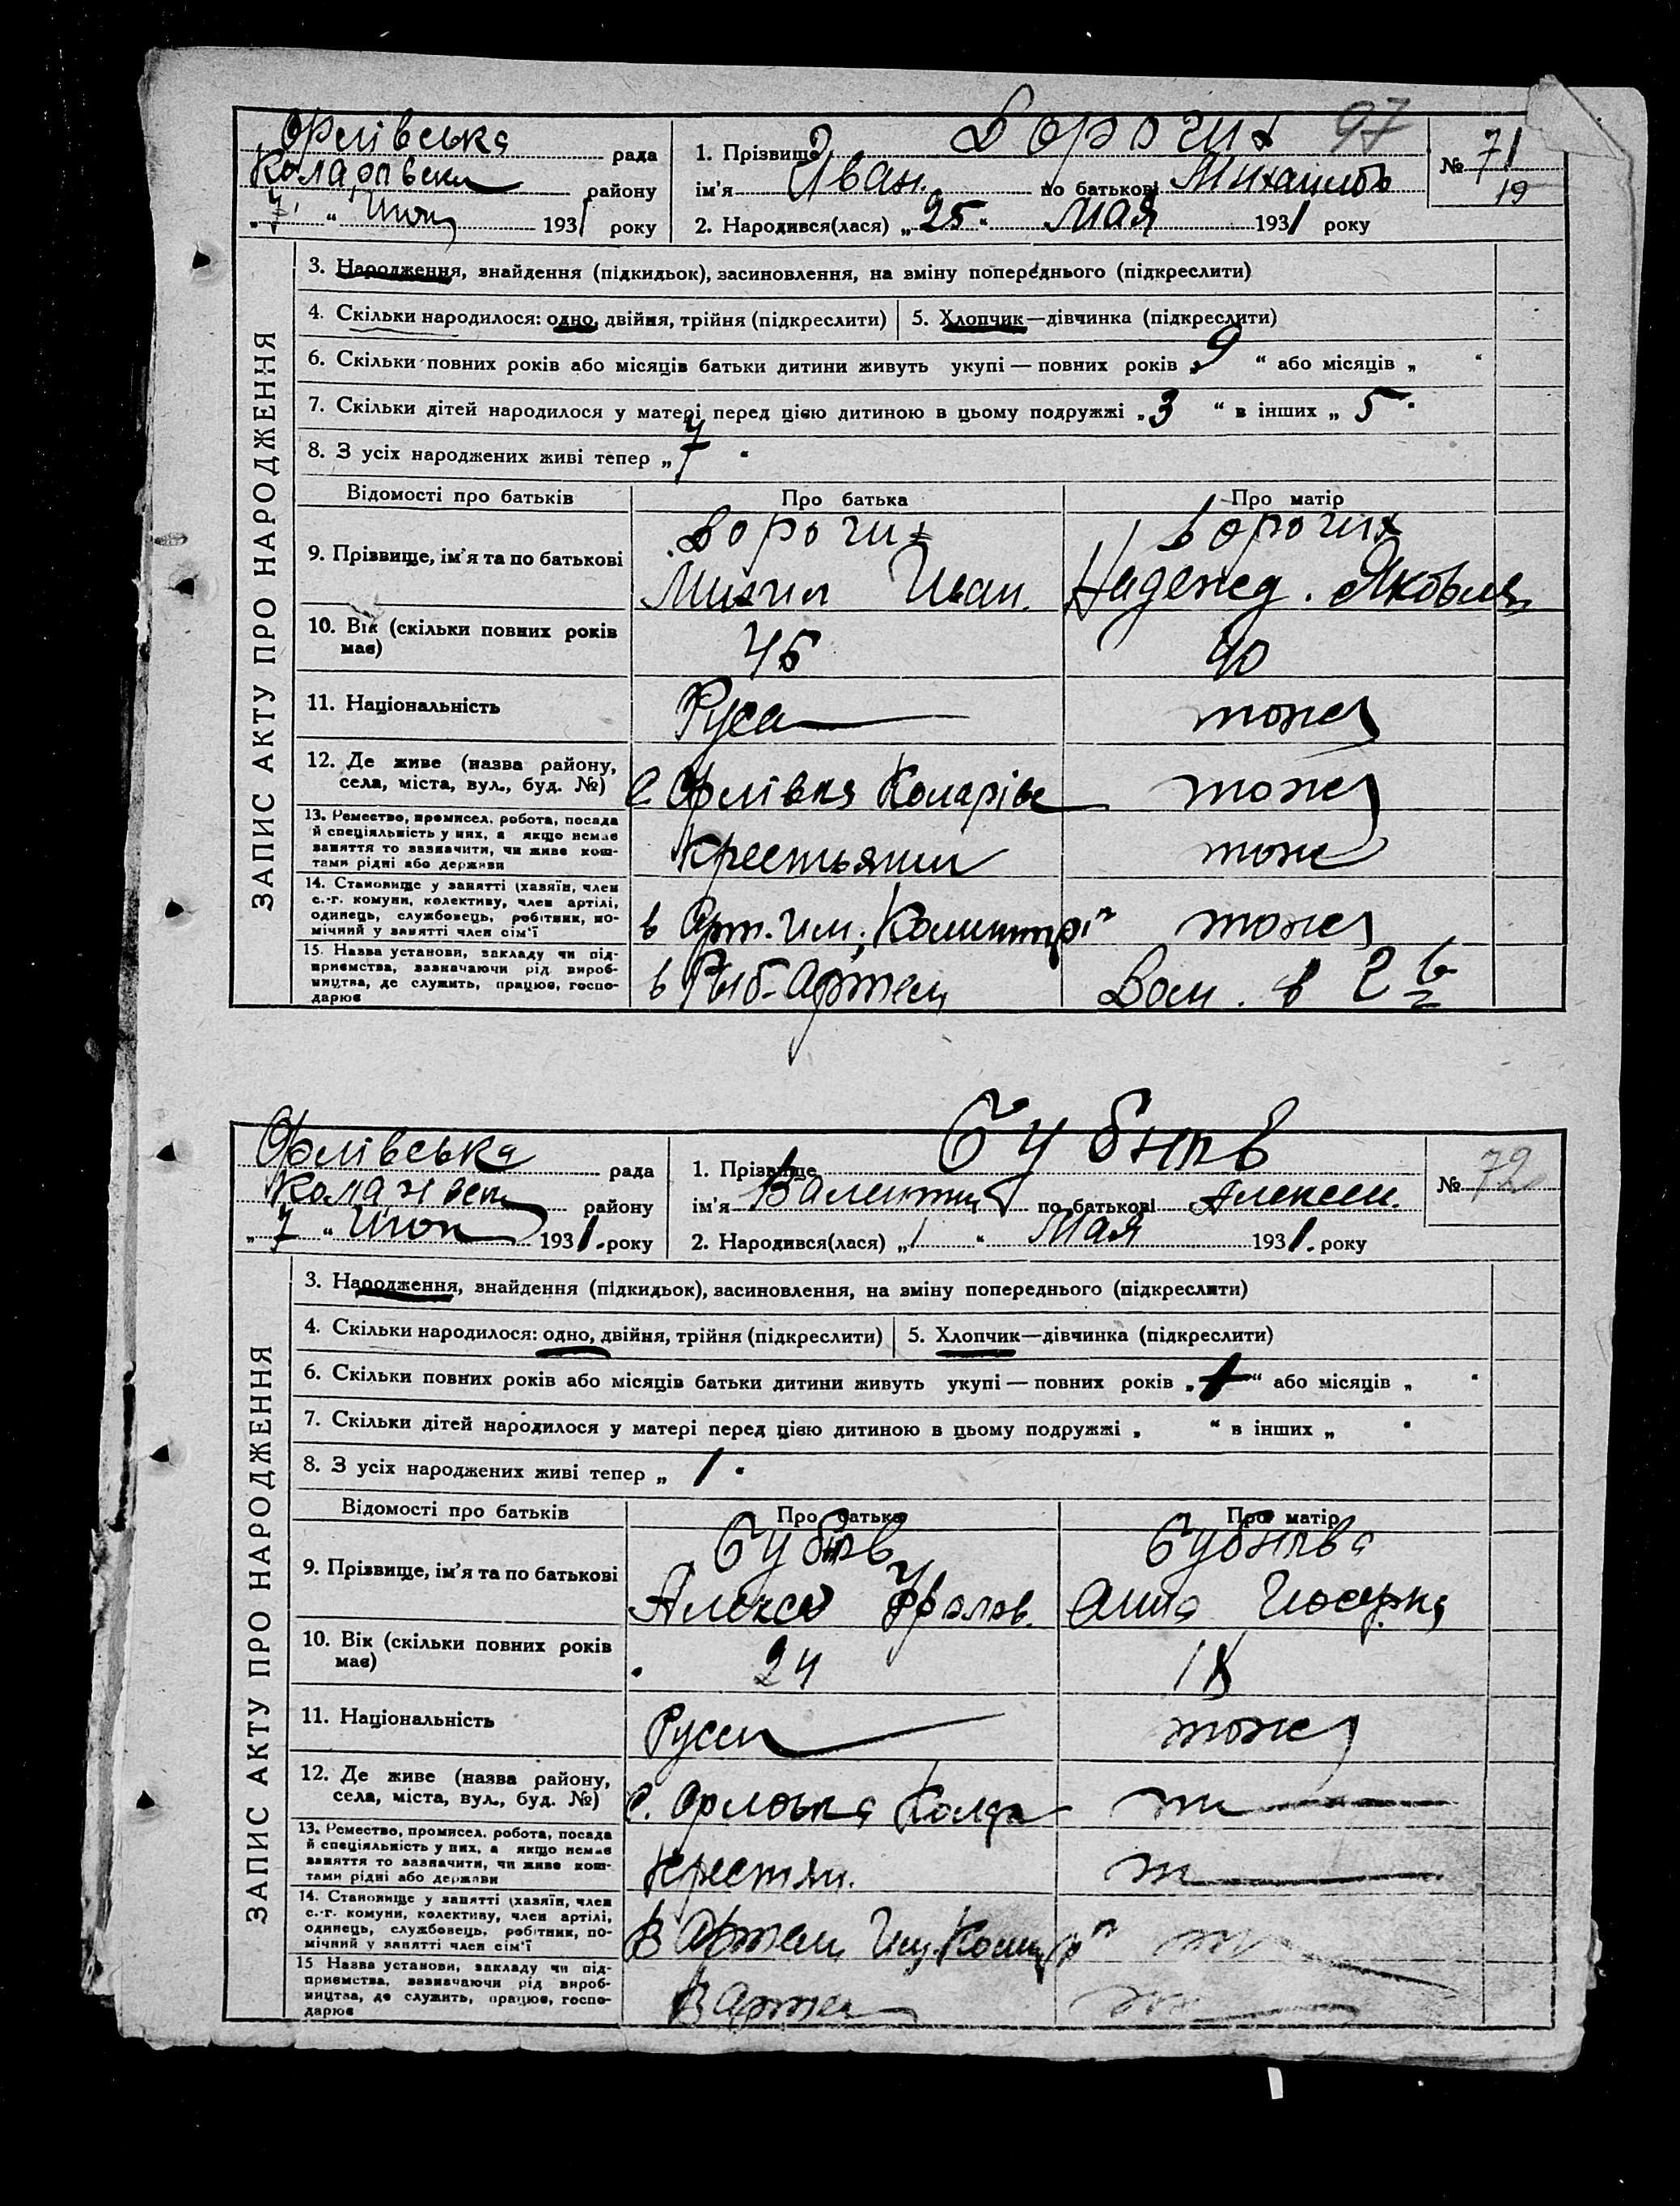 97
Орлівська рада
Коларівськ району
„7“ Июня 1931 року
1. Прізвище Дорогих
ім'я Иван. по батькові Михайлов
2. Народився(лася) „25“ Мая 1931 року
№ 71
19
ЗАПИС АКТУ ПРО НАРОДЖЕННЯ
3. Народження, знайдення (підкидьок), засиновлення, на зміну попереднього (підкреслити)
4. Скільки народилося: одно, двійня, трійня (підкреслити) 5. Хлопчик—дівчинка (підкреслити)
6. Скільки повних років або місяців батьки дитини живуть укупі — повних років „9“ або місяців „ “
7. Скільки дітей народилося у матері перед цією дитиною в цьому подружжі „3“ в інших „5“
8. З усіх народжених живі тепер „7“
Відомості про батьків Про батька Про матір
9. Прізвище, ім'я та по батькові Дорогих Дорогих
Михаил Иван. Надежд. Яковля
10. Вік (скільки повних років має) 45 40
11. Національність Руса тоже
12. Де живе (назва району,
села, міста, вул., буд. №) С Орлівка Коларівс тоже
13. Ремество, промисел, робота, посада
й спеціяльність у них, а якщо немає
заняття то зазначити, чи живе кош-
тами рідні або держави Крестьянин тоже
14. Становище у занятті (хазяїн, член
с.-г. комуни, колективу, член артілі,
одинець, службовець, робітник, по-
мічний у занятті член сім'ї в Арт. им. тоже
15. Назва установи, закладу чи під-
приємства, зазначаючи рід вироб-
ництва, де служить, працює, госпо-
дарює в Рыб-артели
Орлівська рада
району
„7“ Июня 1931. року
1. Прізвище Бубнов
ім'я Валентин по батькові Алексеев.
2. Народився(лася) „1“ Мая 1931. року
№ 72
ЗАПИС АКТУ ПРО НАРОДЖЕННЯ
3. Народження, знайдення (підкидьок), засиновлення, на зміну попереднього (підкреслити)
4. Скільки народилося: одно, двійня, трійня (підкреслити) 5. Хлопчик—дівчинка (підкреслити)
6. Скільки повних років або місяців батьки дитини живуть укупі — повних років „1“ або місяців „ “
7. Скільки дітей народилося у матері перед цією дитиною в цьому подружжі „ “ в інших „ “
8. З усіх народжених живі тепер „1“
Відомості про батьків Про батька Про матір
9. Прізвище, ім'я та по батькові Бубнов Бубнова
Алексей Фролов. Анна
10. Вік (скільки повних років має) 24 18
11. Національність Русск тоже
12. Де живе (назва району,
села, міста, вул., буд. №) С. Орловка Колар т
13. Ремество, промисел, робота, посада
й спеціяльність у них, а якщо немає
заняття то зазначити, чи живе кош-
тами рідні або держави Крестян. т
14. Становище у занятті (хазяїн, член
с.-г. комуни, колективу, член артілі,
одинець, службовець, робітник, по-
мічний у занятті член сім'ї В Артели Им. т
15 Назва установи, закладу чи під-
приємства, зазначаючи рід вироб-
ництва, де служить, працює, госпо-
дарює В Артел